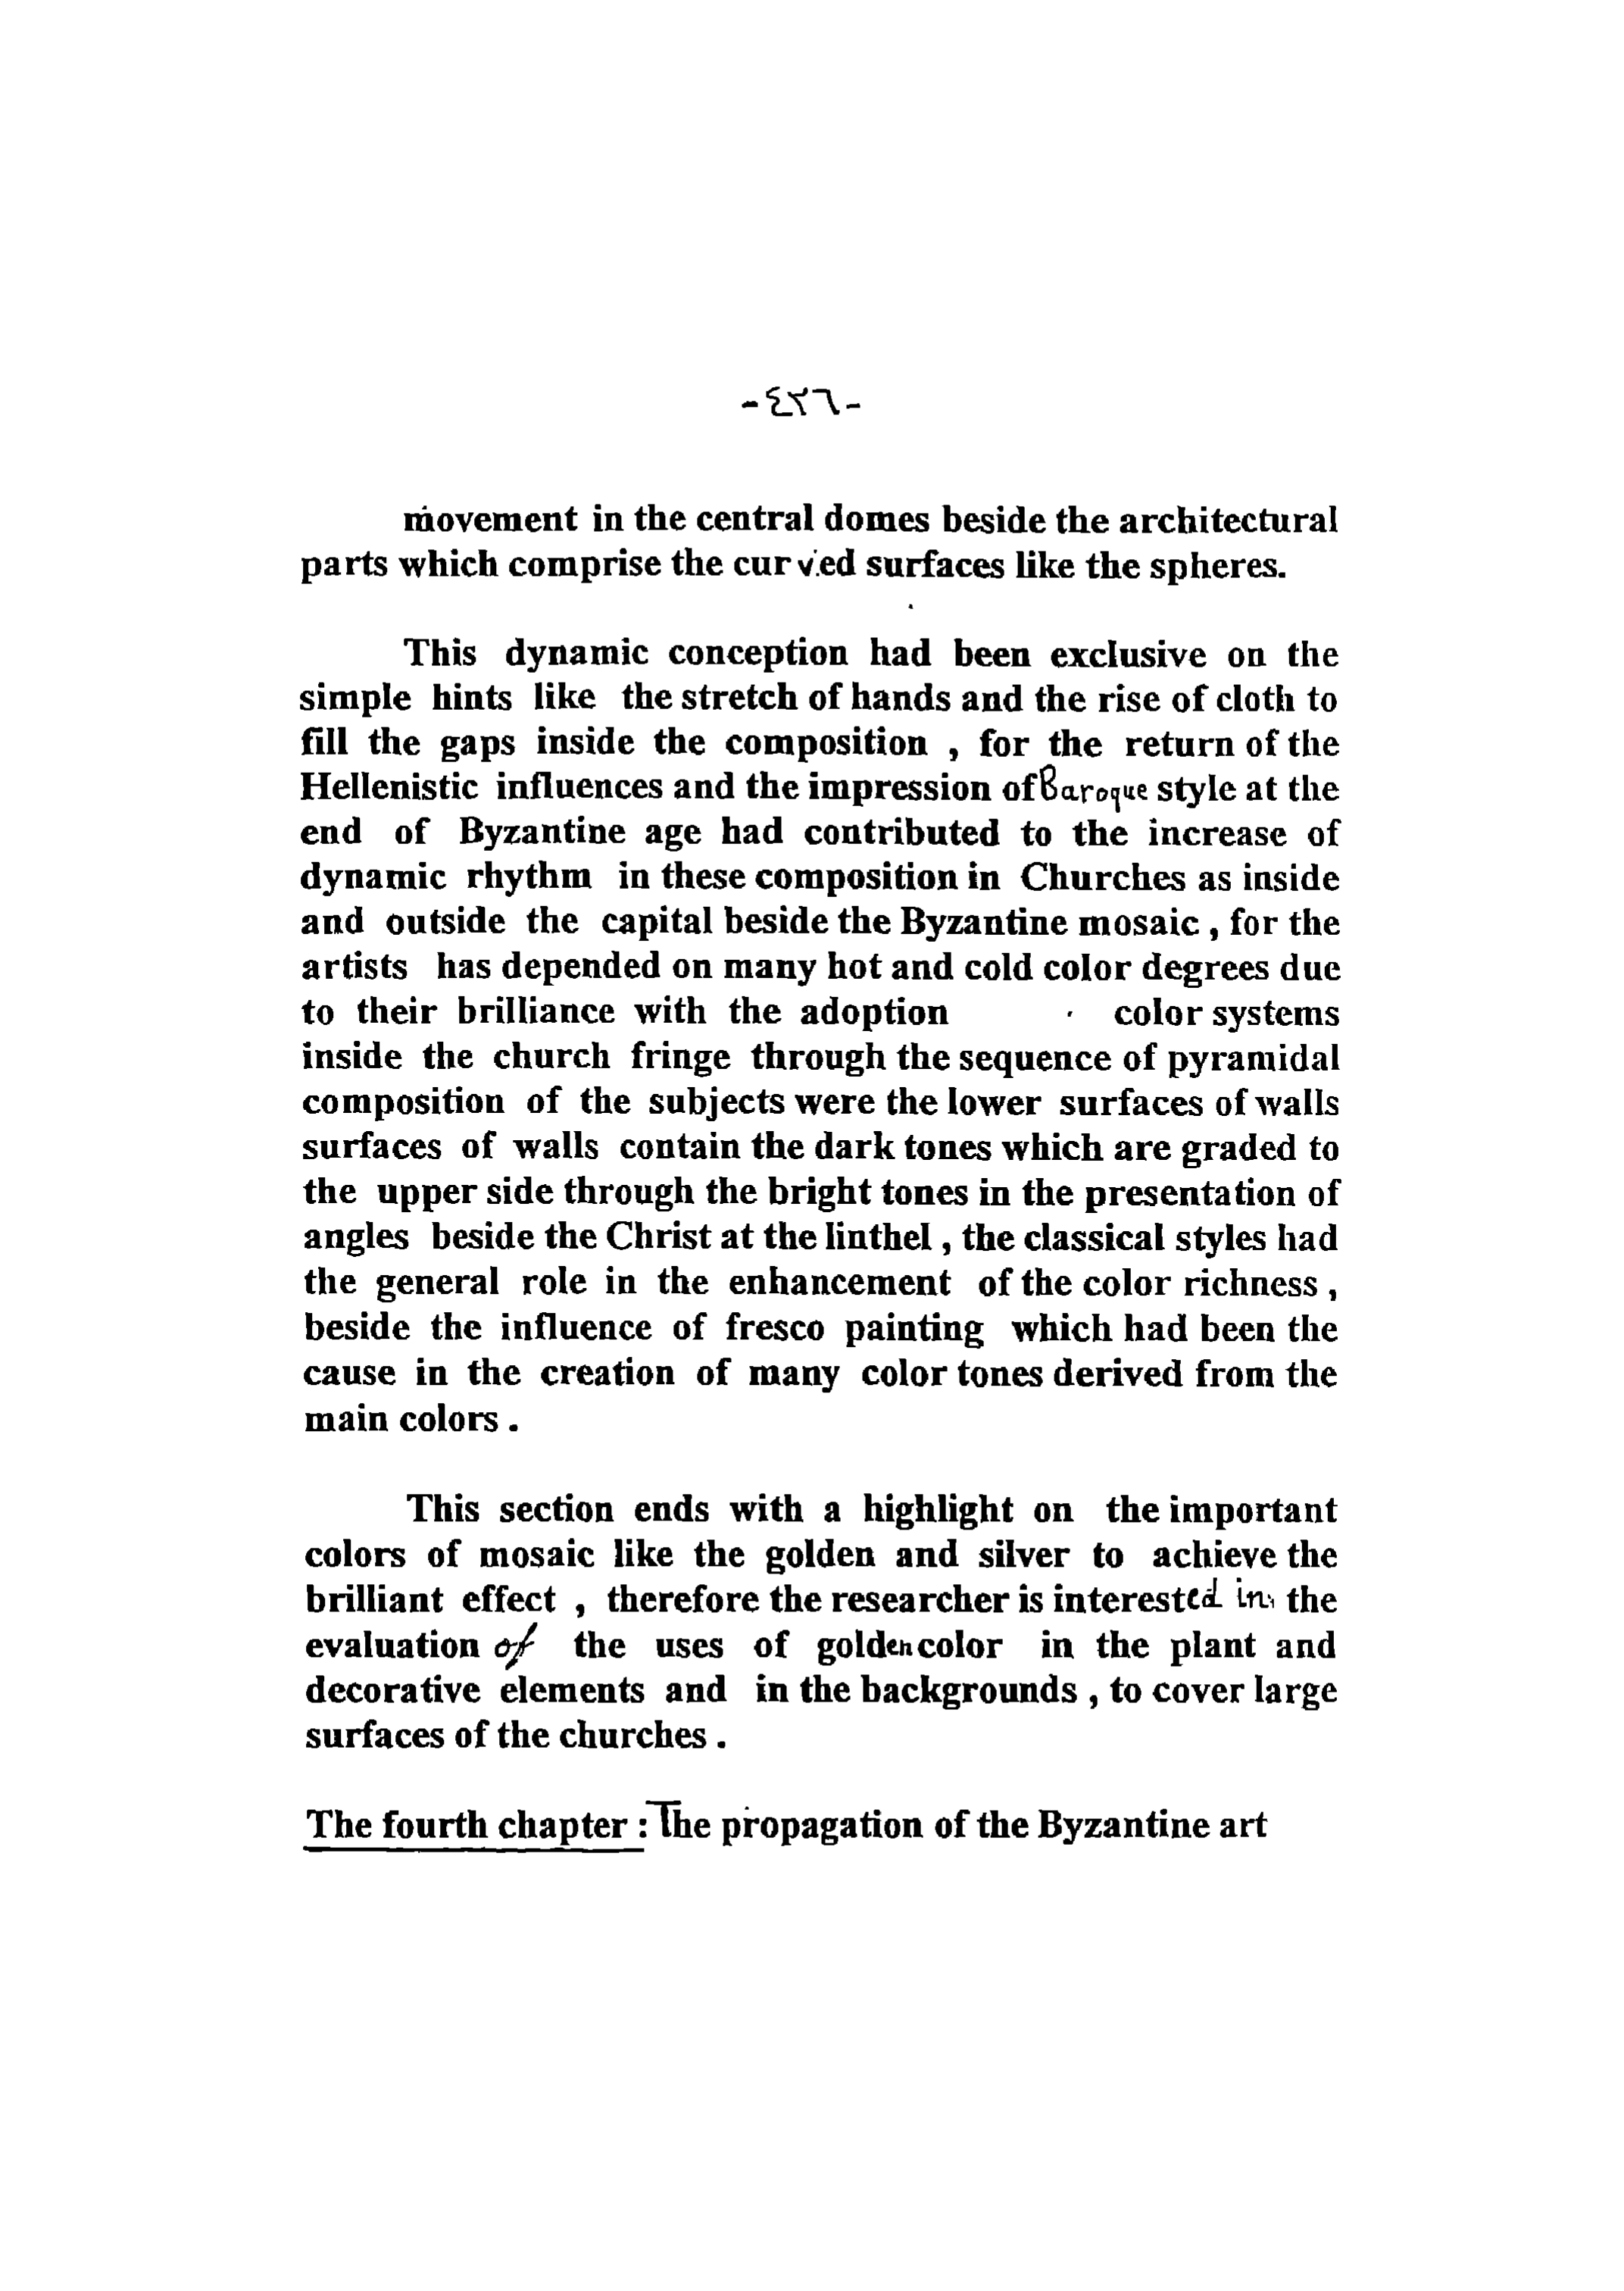 -٤٢٦-
movement in the central domes beside the architectural
parts which comprise the curved surfaces like the spheres.
This dynamic conception had been exclusive on the
simple hints like the stretch of hands and the rise of cloth to
fill the gaps inside the composition , for the return of the
Hellenistic influences and the impression of Baroque style at the
end of Byzantine age had contributed to the increase of
dynamic rhythm in these composition in Churches as inside
and outside the capital beside the Byzantine mosaic , for the
artists has depended on many hot and cold color degrees due
to their brilliance with the adoption color systems
inside the church fringe through the sequence of pyramidal
composition of the subjects were the lower surfaces of walls
surfaces of walls contain the dark tones which are graded to
the upper side through the bright tones in the presentation of
angles beside the Christ at the linthel , the classical styles had
the general role in the enhancement of the color richness ,
beside the influence of fresco painting which had been the
cause in the creation of many color tones derived from the
main colors .
This section ends with a highlight on the important
colors of mosaic like the golden and silver to achieve the
brilliant effect , therefore the researcher is interested in the
evaluation of the uses of golden color in the plant and
decorative elements and in the backgrounds , to cover large
surfaces of the churches .
The fourth chapter : The propagation of the Byzantine art